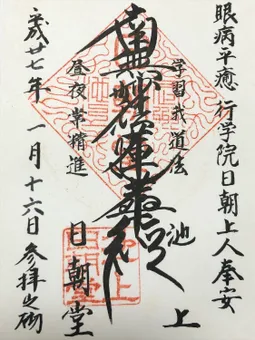 眼病平癒 行学院日朝上人奉安
学習我道法 池上
南無妙法蓮華経
昼夜常精進 日朝堂
平成廿七年 一月十六日 参拝之砌